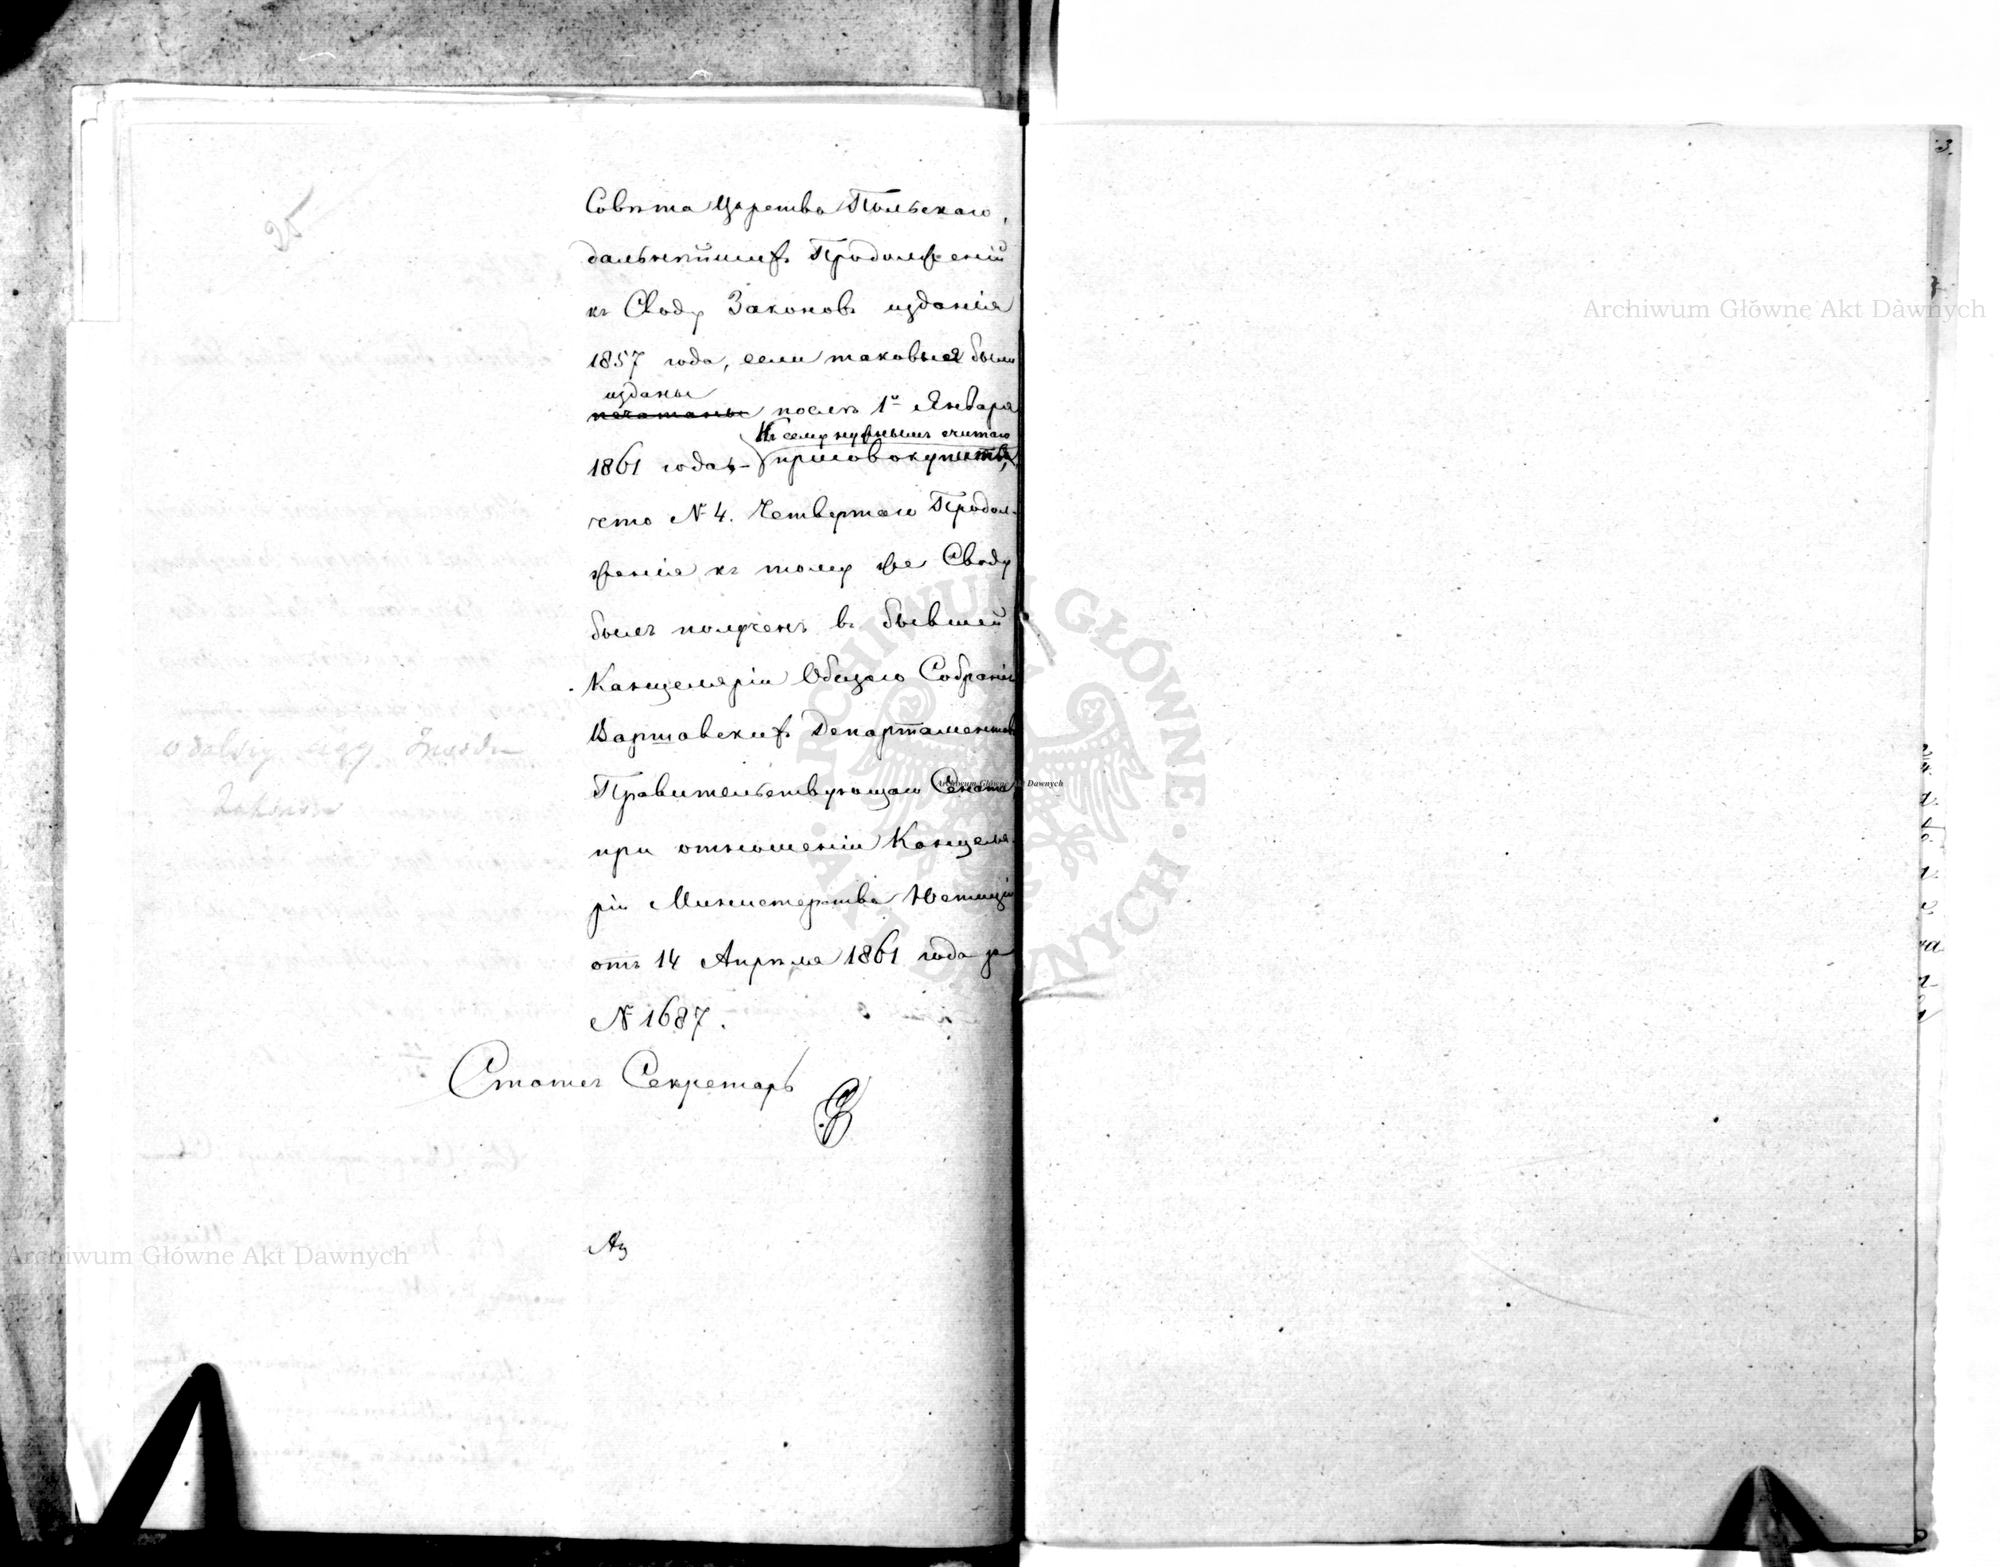 25
Совѣта Царства Польскаго,
дальнѣйшихъ Продолженій
къ Своду Законовъ изданія
1857 года, если таковыя были
изданы
печатаны послѣ 1го Января
Къ сему нужнымъ считаю
1861 года. – присовокупить,
что № 4. Четвертаго Продол-
женія къ тому же Своду
былъ полученъ въ бывшей
Канцеляріи Общаго Собранія
Варшавскихъ Департаментовъ
Правительствующаго Сената
при отношеніи Канцеля-
ріи Министерства Юстиціи
отъ 14 Апрѣля 1861 года за
№ 1687.
Статсъ Секретарь
o dalszy ciąg Zwodu
Zakonow
Archiwum Główne Akt Dawnych
Archiwum Główne Akt Dawnych
Archiwum Główne Akt Dawnych
ARCHIWUM GŁÓWNE AKT DAWNYCH